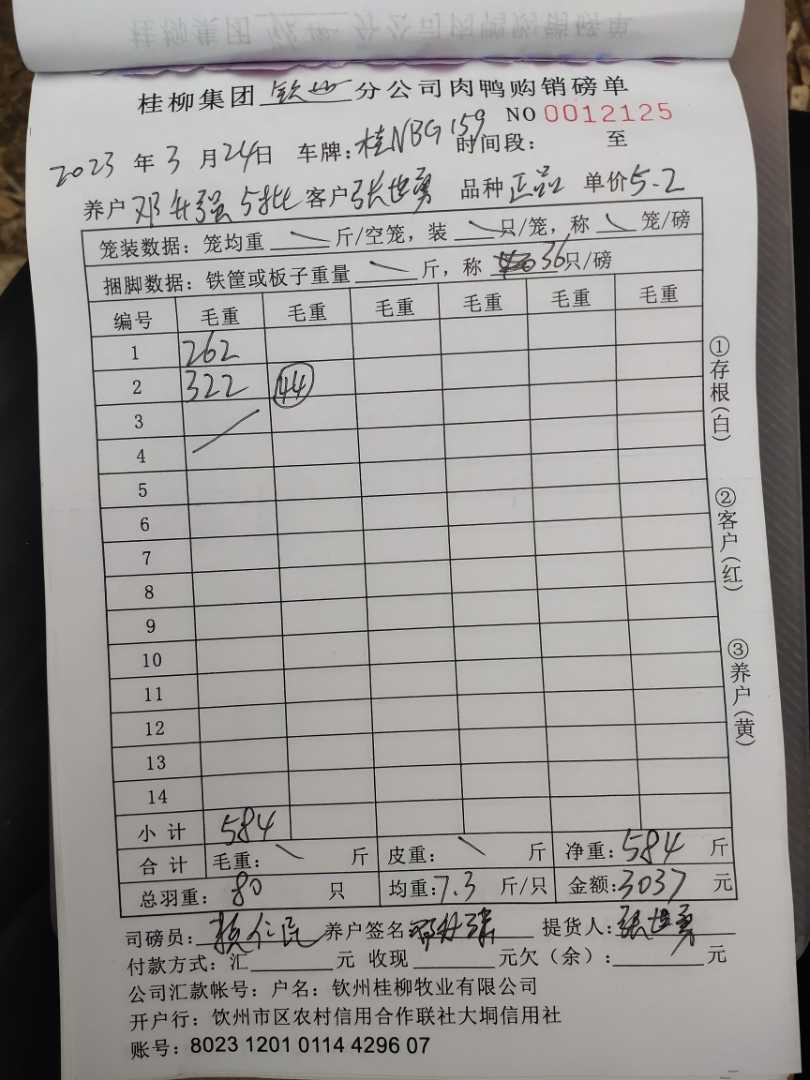 桂柳集团 钦州 分公司肉鸭购销磅单
NO 0012125
2023 年 3 月 24 日 车牌：桂NBG159 时间段： 至
养户 邓升强 5批 客户 张世勇 品种 正品 单价 5.2
笼装数据：笼均重 \ 斤/空笼，装 \ 只/笼，称 \ 笼/磅
捆脚数据：铁筐或板子重量 \ 斤，称 36 只/磅
编号 毛重 毛重 毛重 毛重 毛重 毛重
1 262
2 322 44
3
4
5
6
7
8
9
10
11
12
13
14
小计 584
合计 毛重：\ 斤 皮重：\ 斤 净重：584 斤
总羽重：80 只 均重：7.3 斤/只 金额：3037 元
司磅员： 养户签名 邓升强 提货人：张世勇
付款方式：汇 元 收现 元欠（余）： 元
公司汇款帐号：户名：钦州桂柳牧业有限公司
开户行：钦州市区农村信用合作联社大垌信用社
账号：8023 1201 0114 4296 07
①存根（白）
②客户（红）
③养户（黄）